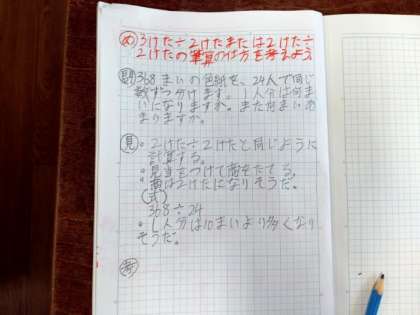 め 3けた÷2けたまたは2けた÷
2けたの筆算の仕方を考えよう
問 368まいの色紙を、24人で同じ
数ずつ分けます。1人分は何ま
いになりますか。また何まいあ
まりますか。
見 ・2けた÷2けたと同じように
計算する。
・見当をつけて商をたてる。
・商は2けたになりそうだ。
式
368÷24
・1人分は10まいより多くなり
そうだ。
考